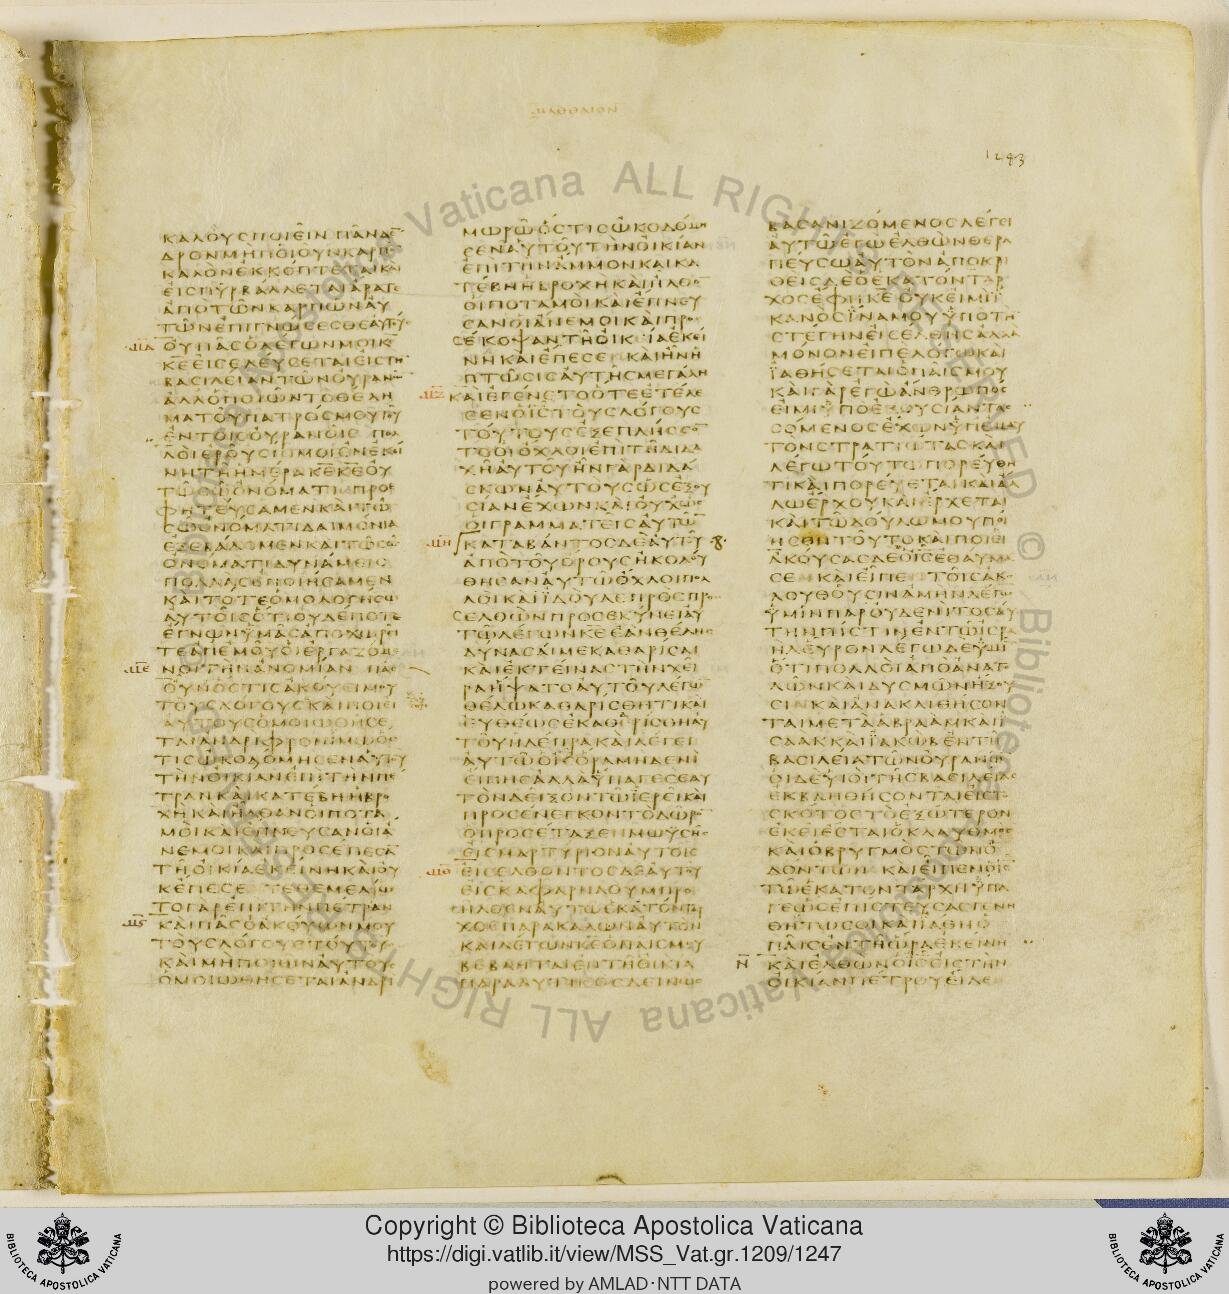 1293
ΚΑΛΟΥϹΠΟΙΕΙΝ ΠΑΝΔΕ̅
ΔΡΟΝΜΗΠΟΙΟΥΝΚΑΡΠΟ̅
ΚΑΛΟΝΕΚΚΟΠΤΕΤΑΙΚΑΙ
ΕΙϹΠΥΡΒΑΛΛΕΤΑΙΑΡΑΓΕ
ΑΠΟΤΩΝΚΑΡΠΩΝΑΥ
ΤΩΝΕΠΙΓΝΩϹΕϹΘΕΑΥΤΟΥϹ
ΟΥΠΑϹΟΛΕΓΩΝΜΟΙΚΕ̅
ΚΕ̅ΕΙϹΕΛΕΥϹΕΤΑΙΕΙϹΤΗ̅
ΒΑϹΙΛΕΙΑΝΤΩΝΟΥΡΑΝΩ̅
ΑΛΛΟΠΟΙΩΝΤΟΘΕΛΗ
ΜΑΤΟΥΠΑΤΡΟϹΜΟΥΤΟΥ
ΕΝΤΟΙϹΟΥΡΑΝΟΙϹ ΠΟΛ
ΛΟΙΕΡΟΥϹΙΜΟΙΕΝΕΚΕΙ
ΝΗΤΗΗΜΕΡΑΚΕ̅ΚΕ̅ΟΥ
ΤΩϹΩΟΝΟΜΑΤΙΕΠΡΟΕ
ΦΗΤΕΥϹΑΜΕΝΚΑΙΤΩ
ϹΩΟΝΟΜΑΤΙΔΑΙΜΟΝΙΑ
ΕΞΕΒΑΛΟΜΕΝΚΑΙΤΩϹΩ
ΟΝΟΜΑΤΙΔΥΝΑΜΕΙϹ
ΠΟΛΛΑϹΕΠΟΙΗϹΑΜΕΝ
ΚΑΙΤΟΤΕΟΜΟΛΟΓΗϹΩ
ΑΥΤΟΙϹΟΤΙΟΥΔΕΠΟΤΕ
ΕΓΝΩΝΫΜΑϹΑΠΟΧΩΡΕΙ
ΤΕΑΠΕΜΟΥΟΙΕΡΓΑΖΟΜΕ
ΝΟΙΤΗΝΑΝΟΜΙΑΝ ΠΑϹ
ΟΥΝΟϹΤΙϹΑΚΟΥΕΙΜΟΥ
ΤΟΥϹΛΟΓΟΥϹΚΑΙΠΟΙΕΙ
ΑΥΤΟΥϹΟΜΟΙΩΘΗϹΕ
ΤΑΙΑΝΔΡΙΦΡΟΝΙΜΩΟϹ
ΤΙϹΩΚΟΔΟΜΗϹΕΝΑΥΤΟΥ
ΤΗΝΟΙΚΙΑΝΕΠΙΤΗΝΠΕ
ΤΡΑΝΚΑΙΚΑΤΕΒΗΗΒΡΟ
ΧΗΚΑΙΗΛΘΑΝΟΙΠΟΤΑ
ΜΟΙΚΑΙΕΠΝΕΥϹΑΝΟΙΑ
ΝΕΜΟΙΚΑΙΠΡΟϹΕΠΕϹΑ̅
ΤΗΟΙΚΙΑΕΚΕΙΝΗΚΑΙΟΥ
ΚΕΠΕϹΕ ΤΕΘΕΜΕΛΙΩ
ΤΟΓΑΡΕΠΙΤΗΝΠΕΤΡΑΝ
ΚΑΙΠΑϹΟΑΚΟΥΩΝΜΟΥ
ΤΟΥϹΛΟΓΟΥϹΤΟΥΤΟΥϹ
ΚΑΙΜΗΠΟΙΩΝΑΥΤΟΥϹ
ΟΜΟΙΩΘΗϹΕΤΑΙΑΝΔΡΙ
ΜΩΡΩΟϹΤΙϹΩΚΟΔΟΜΗ
ϹΕΝΑΥΤΟΥΤΗΝΟΙΚΙΑΝ
ΕΠΙΤΗΝΑΜΜΟΝΚΑΙΚΑ
ΤΕΒΗΗΒΡΟΧΗΚΑΙΗΛΘΟ̅
ΟΙΠΟΤΑΜΟΙΚΑΙΕΠΝΕΥ
ϹΑΝΟΙΑΝΕΜΟΙΚΑΙΠΡΟ
ϹΕΚΟΨΑΝΤΗΟΙΚΙΑΕΚΕΙ
ΝΗΚΑΙΕΠΕϹΕ ΚΑΙΗΝΗ
ΠΤΩϹΙϹΑΥΤΗϹΜΕΓΑΛΗ
ΚΑΙΕΓΕΝΕΤΟΟΤΕΕΤΕΛΕ
ϹΕΝΟΙϹΤΟΥϹΛΟΓΟΥϹ
ΤΟΥΤΟΥϹΕΞΕΠΛΗϹϹΟ̅
ΤΟΟΙΟΧΛΟΙΕΠΙΤΗΔΙΔΑ
ΧΗΑΥΤΟΥΗΝΓΑΡΔΙΔΑ
ϹΚΩΝΑΥΤΟΥϹΩϹΕΞΟΥ
ϹΙΑΝΕΧΩΝΚΑΙΟΥΧΩϹ
ΟΙΓΡΑΜΜΑΤΕΙϹΑΥΤΩ̅
ΚΑΤΑΒΑΝΤΟϹΔΕΑΥΤΟΥ
ΑΠΟΤΟΥΟΡΟΥϹΗΚΟΛΟΥ
ΘΗϹΑΝΑΥΤΩΟΧΛΟΙΠΟΛ
ΛΟΙΚΑΙΙΔΟΥΛΕΠΡΟϹΠΡΟϹ
ΕΛΘΩΝΠΡΟϹΕΚΥΝΕΙΑΥ
ΤΩΛΕΓΩΝΚΕ̅ΕΑΝΘΕΛΗϹ
ΔΥΝΑϹΑΙΜΕΚΑΘΑΡΙϹΑΙ
ΚΑΙΕΚΤΕΙΝΑϹΤΗΝΧΕΙ
ΡΑΗΨΑΤΟΑΥΤΟΥΛΕΓΩ̅
ΘΕΛΩΚΑΘΑΡΙϹΘΗΤΙΚΑΙ
ΕΥΘΕΩϹΕΚΑΘΕΡΙϹΘΗΑΥ
ΤΟΥΗΛΕΠΡΑΚΑΙΛΕΓΕΙ
ΑΥΤΩΟΙϹΟΡΑΜΗΔΕΝΙ
ΕΙΠΗϹΑΛΛΑΫΠΑΓΕϹΕΑΥ
ΤΟΝΔΕΙΞΟΝΤΩΪΕΡΕΙΚΑΙ
ΠΡΟϹΕΝΕΓΚΟΝΤΟΔΩΡΟ̅
ΟΠΡΟϹΕΤΑΞΕΝΜΩΥϹΗϹ
ΕΙϹΜΑΡΤΥΡΙΟΝΑΥΤΟΙϹ
ΕΙϹΕΛΘΟΝΤΟϹΔΕΑΥΤΟΥ
ΕΙϹΚΑΦΑΡΝΑΟΥΜΠΡΟϹ
ΗΛΘΕΝΑΥΤΩΕΚΑΤΟΝΤΑΡ
ΧΟϹΠΑΡΑΚΑΛΩΝΑΥΤΟΝ
ΚΑΙΛΕΓΩΝΚΕ̅ΟΠΑΙϹΜΟΥ
ΒΕΒΛΗΤΑΙΕΝΤΗΟΙΚΙΑ
ΠΑΡΑΛΥΤΙΚΟϹΔΕΙΝΩϹ
ΒΑϹΑΝΙΖΟΜΕΝΟϹΛΕΓΕΙ
ΑΥΤΩΕΓΩΕΛΘΩΝΘΕΡΑ
ΠΕΥϹΩΑΥΤΟΝΑΠΟΚΡΙ
ΘΕΙϹΔΕΟΕΚΑΤΟΝΤΑΡ
ΧΟϹΕΦΗΚΕ̅ΟΥΚΕΙΜΙΪ
ΚΑΝΟϹΪΝΑΜΟΥΫΠΟΤΗ̅
ϹΤΕΓΗΝΕΙϹΕΛΘΗϹΑΛΛΑ
ΜΟΝΟΝΕΙΠΕΛΟΓΩΚΑΙ
ΪΑΘΗϹΕΤΑΙΟΠΑΙϹΜΟΥ
ΚΑΙΓΑΡΕΓΩΑΝΘΡΩΠΟϹ
ΕΙΜΙΫΠΟΕΞΟΥϹΙΑΝΤΑϹ
ϹΟΜΕΝΟϹΕΧΩΝΫΠΕΜΑΥ
ΤΟΝϹΤΡΑΤΙΩΤΑϹΚΑΙ
ΛΕΓΩΤΟΥΤΩΠΟΡΕΥΘΗ
ΤΙΚΑΙΠΟΡΕΥΕΤΑΙΚΑΙΑΛ
ΛΩΕΡΧΟΥΚΑΙΕΡΧΕΤΑΙ
ΚΑΙΤΩΔΟΥΛΩΜΟΥΠΟΙ
ΗϹΟΝΤΟΥΤΟΚΑΙΠΟΙΕΙ
ΑΚΟΥϹΑϹΔΕΟΙϹΕΘΑΥΜΑ
ϹΕ ΚΑΙΕΙΠΕ ΤΟΙϹΑΚΟ
ΛΟΥΘΟΥϹΙΝΑΜΗΝΛΕΓΩ
ΫΜΙΝΠΑΡΟΥΔΕΝΙΤΟϹΑΥ
ΤΗΝΠΙϹΤΙΝΕΝΤΩΙϹΡΑ
ΗΛΕΥΡΟΝΛΕΓΩΔΕΫΜΙ̅
ΟΤΙΠΟΛΛΟΙΑΠΟΑΝΑΤΟ
ΛΩΝΚΑΙΔΥϹΜΩΝΗΞΟΥ
ϹΙ ΚΑΙΑΝΑΚΛΙΘΗϹΟΝ
ΤΑΙΜΕΤΑΑΒΡΑΑΜΚΑΙΪ
ϹΑΑΚΚΑΙΪΑΚΩΒΕΝΤΗ
ΒΑϹΙΛΕΙΑΤΩΝΟΥΡΑΝΩ̅
ΟΙΔΕΥΙΟΙΤΗϹΒΑϹΙΛΕΙΑϹ
ΕΚΒΛΗΘΗϹΟΝΤΑΙΕΙϹΤΟ
ϹΚΟΤΟϹΤΟΕΞΩΤΕΡΟΝ
ΕΚΕΙΕϹΤΑΙΟΚΛΑΥΘΜΟϹ
ΚΑΙΟΒΡΥΓΜΟϹΤΩΝΟ
ΔΟΝΤΩΝ ΚΑΙΕΙΠΕΝΟΙϹ
ΤΩΕΚΑΤΟΝΤΑΡΧΗΫΠΑ
ΓΕΩϹΕΠΙϹΤΕΥϹΑϹΓΕΝΗ
ΘΗΤΩϹΟΙΚΑΙΪΑΘΗΟ
ΠΑΙϹΕΝΤΗΩΡΑΕΚΕΙΝΗ
Ν̅ ΚΑΙΕΛΘΩΝΟΙϹΕΙϹΤΗΝ
ΟΙΚΙΑΝΠΕΤΡΟΥΕΙΔΕ
Copyright © Biblioteca Apostolica Vaticana
https://digi.vatlib.it/view/MSS_Vat.gr.1209/1247
powered by AMLAD·NTT DATA